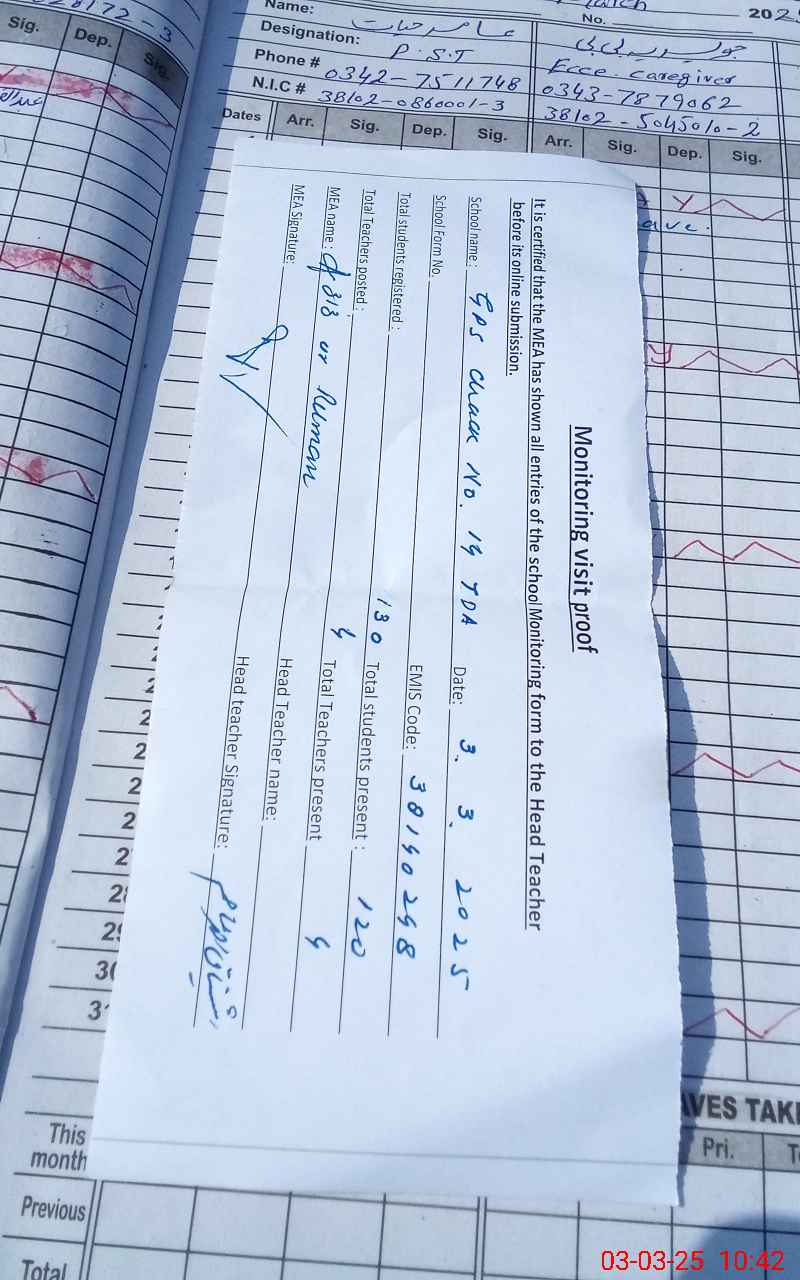 28172-3
Sig. Dep. Sig.
Name: عامر حیات
No.
202
Designation: P.S.T
Ecce caregiver
Phone # 0342-7511748
0343-7879062
N.I.C # 38102-0860001-3
38102-5045010-2
Dates Arr. Sig. Dep. Sig. Arr. Sig. Dep. Sig.
ave.
Monitoring visit proof
It is certified that the MEA has shown all entries of the school Monitoring form to the Head Teacher
before its online submission.
School name: GPS Chack No. 14 TDA Date: 3. 3. 2025
School Form No. EMIS Code: 38140248
Total students registered: 130 Total students present: 120
Total Teachers posted: 4 Total Teachers present 4
MEA name: ur Ruman Head Teacher name:
MEA Signature: Head teacher Signature:
2
2
2
2
28
29
30
31
AVES TAKE
Pri.
This
month
Previous
Total
03-03-25 10:42